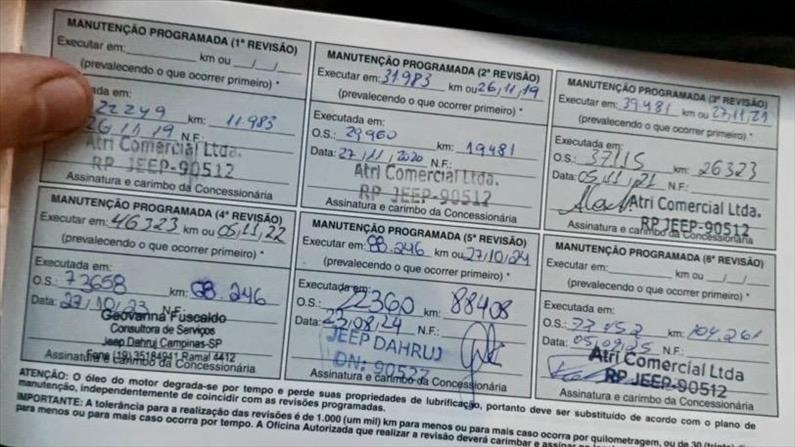 MANUTENÇÃO PROGRAMADA (1ª REVISÃO)
Executar em: km ou / /
(prevalecendo o que ocorrer primeiro) *
22249 km: 11.983
26/11/19 N.F.
Atri Comercial Ltda.
RP JEEP-90512
Assinatura e carimbo da Concessionária
MANUTENÇÃO PROGRAMADA (2ª REVISÃO)
Executar em: 31983 km ou 26/11/19
(prevalecendo o que ocorrer primeiro) *
Executada em:
O.S.: 29960 km: 19481
Data: 27/11/2020 N.F.
Atri Comercial Ltda.
RP JEEP-90512
Assinatura e carimbo da Concessionária
MANUTENÇÃO PROGRAMADA (3ª REVISÃO)
Executar em: 39.481 km ou 27/11/21
(prevalecendo o que ocorrer primeiro) *
Executada em:
O.S.: 37115 km: 26323
Data: 05/11/21 N.F.:
Atri Comercial Ltda.
RP JEEP-90512
Assinatura e carimbo da Concessionária
MANUTENÇÃO PROGRAMADA (4ª REVISÃO)
Executar em: 46323 km ou 05/11/22
(prevalecendo o que ocorrer primeiro) *
Executada em:
O.S.: 73658 km: 68.246
Data: 27/10/23 N.F.
Geovanna Fuscaldo
Consultora de Serviços
Jeep Dahruj Campinas-SP
Fone (19) 35184941 Ramal 4412
Assinatura e carimbo da Concessionária
MANUTENÇÃO PROGRAMADA (5ª REVISÃO)
Executar em: 88.246 km ou 27/10/24
(prevalecendo o que ocorrer primeiro) *
Executada em:
O.S.: 22360 km: 88408
Data: 22/08/24 N.F.:
JEEP DAHRUJ
DN:
Assinatura e carimbo da Concessionária
MANUTENÇÃO PROGRAMADA (6ª REVISÃO)
Executar em: km ou / /
(prevalecendo o que ocorrer primeiro) *
Executada em:
O.S.: km: 104.261
Data: 05/09/25 N.F.:
Atri Comercial Ltda
RP JEEP-90512
Assinatura e carimbo da Concessionária
ATENÇÃO: O óleo do motor degrada-se por tempo e perde suas propriedades de lubrificação, portanto deve ser substituído de acordo com o plano de
manutenção, independentemente de coincidir com as revisões programadas.
IMPORTANTE: A tolerância para a realização das revisões é de 1.000 (um mil) km para menos ou para mais caso ocorra por quilometragem, ou de 30 (trinta)
para menos ou para mais caso ocorra por tempo. A Oficina Autorizada que realizar a revisão deverá carimbar e assinar